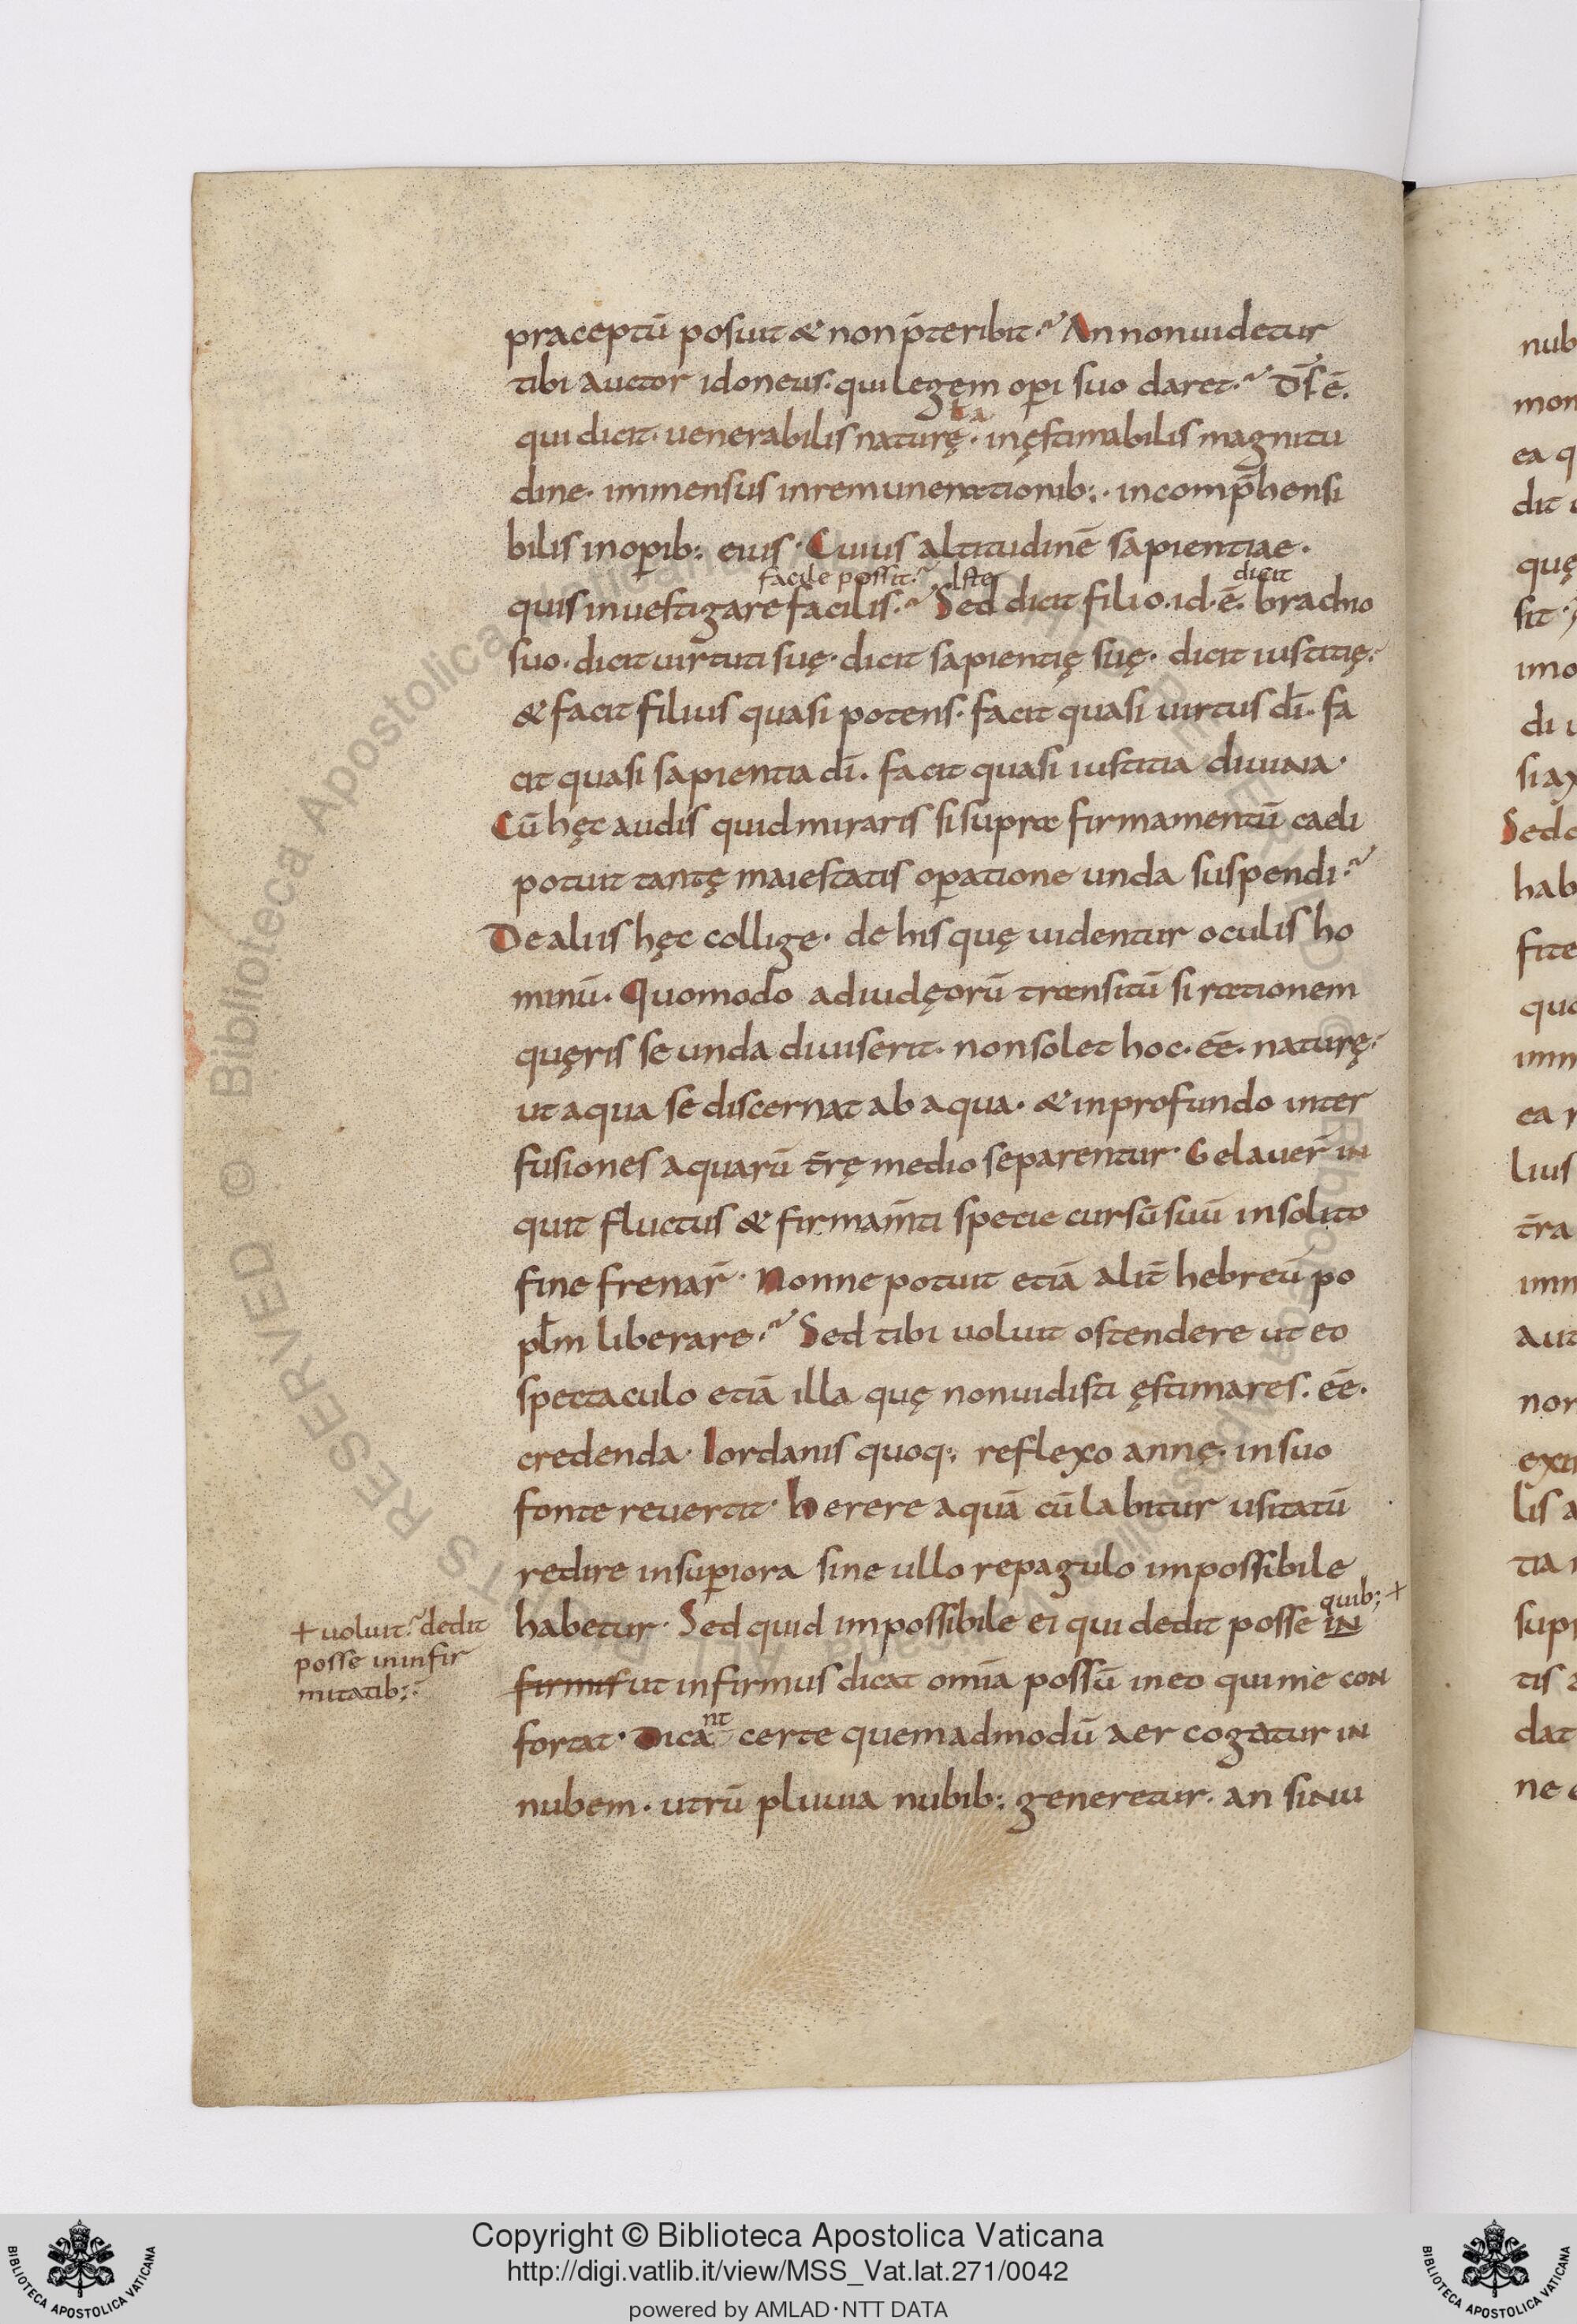 praeceptū posuit & non p̄teribit? An non uidetur
tibi auctor idoneus· qui legẹm op̲i suo daret? D̄s ē.
qui dicit· uenerabilis naturę· inęstimabilis magnitu
dine· immensus in remunerationib:· incomp̄hensi
bilis in op̲ib: eius· Cuius altitudinē sapientiae·
facile possit? Iste dicit
quis inuestigare facilis? Sed dicit filio· id·ē· brachio
suo· dicit uirtuti suę· dicit sapientię suę· dicit iustitię·
& facit filius quasi potens· facit quasi uirtus dī· fa
cit quasi sapientia dī. facit quasi iustitia diuina·
Cū hęc audis quid miraris si supra firmamentū caeli
potuit tantę maiestatis op̲atione unda suspendi?
De aliis hęc collige· de his quę uidentur oculis ho
minū· Quomodo ad iudęorū transitū si rationem
quęris se unda diuiserit· non solet hoc·ēē· naturę·
ut aqua se discernat ab aqua· & in profundo inter
fusiones aquarū t̄rę medio separentur· Gelauer̄ in
quit fluctus & firmam̄ti specie cursū suū insolito
fine frenar̄· Nonne potuit etiā alit̄ hebreū po
pl̄m liberare? Sed tibi uoluit ostendere ut eo
spectaculo etiā illa quę non uidisti ęstimares. ēē.
credenda· Iordanis quoq: reflexo annę· in suo
fonte reuertit· Herere aquā cū labitur usitatū
redire in sup̲iora sine ullo repagulo impossibile
quib; +
habetur· Sed quid impossibile ei qui dedit posse in
+ uoluit? dedit
posse in infir
mitatib;·
firmis ut infirmus dicat omīa possū in eo qui me con
nt
fortat· Dica certe quemadmodū aer cogatur in
nubem· utrū pluuia nubib: generetur· an sinu
nub
mon
ea q
dit
quę
sit
imo
di u
si ax
Sed
hab
fite
quo
imm
ea
lius
t̄ra
imm
aut
non
exti
lis a
tia
supr
tis
dat
ne
Copyright © Biblioteca Apostolica Vaticana
http://digi.vatlib.it/view/MSS_Vat.lat.271/0042
powered by AMLAD·NTT DATA
BIBLIOTECA APOSTOLICA VATICANA
BIBLIOTECA APOSTOLICA VATICANA